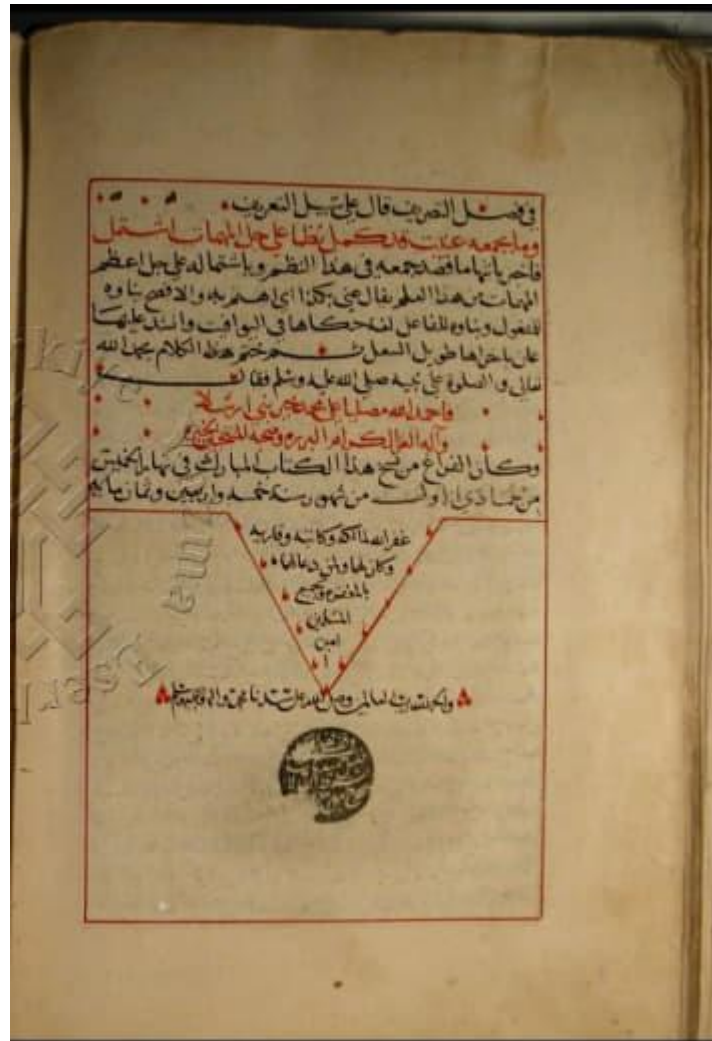 في فصل التصريف قال على سبيل التعريف
وما بجمعه عنيت قد كمل نظما على جل المهمات اشتمل
فاخبر بانها ما قصد جمعه في هذا النظم وباشتماله على جل اعظم
المهمات من هذا العلم يقال عني بكذا اي اهتم به والافصح بناوه
للمفعول وبناوه للفاعل لغة حكاها في اليواقيت وانشد عليها
عان باخراها طويل الشغل ثم ختم هذا الكلام بحمد الله
تعالى والصلوة على نبيه صلى الله عليه وسلم فقال
فاحمد الله مصليا على محمد خير نبي ارسلا
وآله الغر الكرام البررة وصحبه المنتخبين الخيرة
وكان الفراغ من نسخ هذا الكتاب المبارك في نهار الخميس
من جمادي الاول من شهور سنة خمسة واربعين وثمان مايه
غفر الله لمالكه وكاتبه وقاريه
وكان لها ولمن دعا لهما
بالمغفرة ولجميع
المسلمين
امين
والحمد لله رب العالمين وصلى الله على سيدنا محمد واله وصحبه وسلم